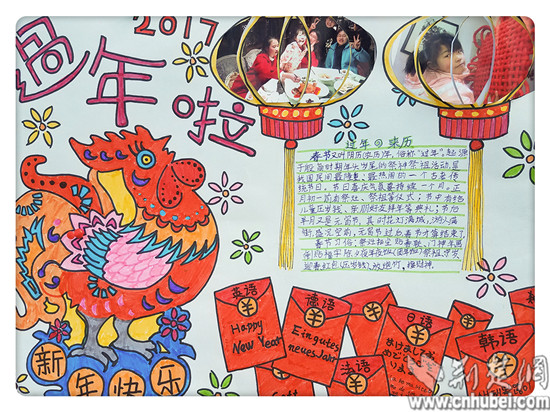 2017
過年啦
过年的来历
春节又叫阴历农历年,俗称"过年",起源
于殷商时期年头岁尾的祭神祭祖活动,是
我国民间最隆重、最热闹的一个古老传
统节日。节日喜庆气氛要持续一个月。正
月初一前有祭灶、祭祖等仪式;节中有给
儿童压岁钱、亲朋好友拜年等典礼;节后
半月又是元宵节,其时花灯满城,游人满
街,盛况空前,元宵节过后春节才算结束了。
英语
Happy
New Year
德语
Ein gutes
neues Jahr
日语
あけまして
おめでとう
法语
韩语
新年快乐
荆楚网
www.cnhubei.com